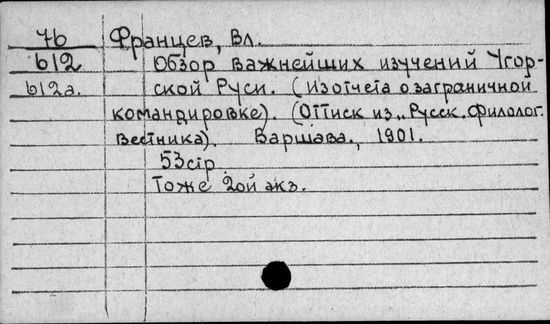 76 Францев, Вл.
b12 Обзор важнейших изучений Угор-
b12a. ской Руси. (Из отчета о заграничной
командировке). (Оттиск из „Русск. Филолог.
Вестника). Варшава., 1901.
53 стр.
Тоже 2ой экз.